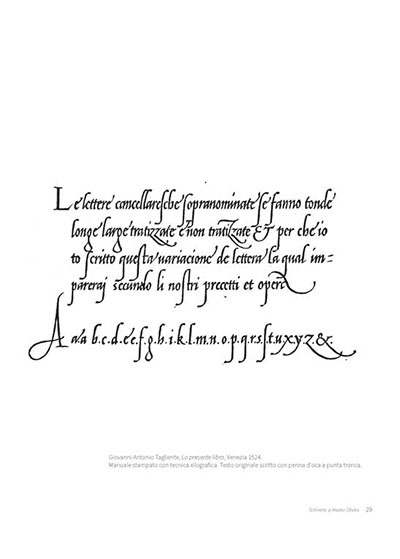 Le lettere cancellaresche sopranominate se fanno tonde
longe large tratizzate e non tratizate & per che io
to scritto questa variacione de lettera la qual im=
pareraj secundo li nostri precetti et opere
A a a b. c. d. e é. f. g. h. i. k. l. m. n. o. p. q. r. s. ſ. t. u. x. y. z. &.
Giovanni Antonio Tagliente, Lo presente libro, Venezia 1524.
Manuale stampato con tecnica xilografica. Testo originale scritto con penna d'oca a punta tronca.
Scrivere a mano libera 29